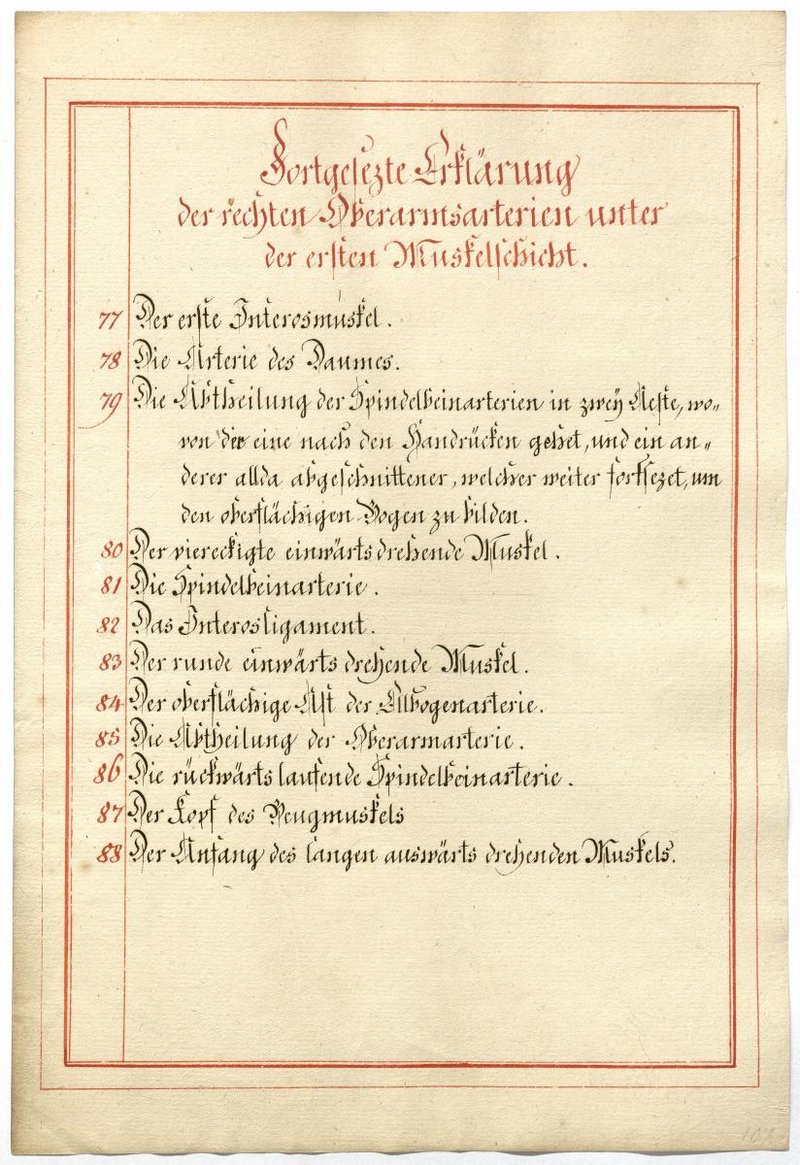 Fortgesezte Erklärung
der rechten Oberarmsarterien unter
der ersten Muskelschicht.
77 Der erste Interosmuskel.
78 Die Arterie des Daumes.
79 Die Abtheilung der Spindelbeinarterien in zwey Aeste, wo-
von der eine nach den Handrücken gehet, und ein an-
derer allda abgeschnittener, welcher weiter fortsezet, um
den oberflächigen Bogen zu bilden.
80 Der viereckigte einwärts drehende Muskel.
81 Die Spindelbeinarterie.
82 Das Interosligament.
83 Der runde einwärts drehende Muskel.
84 Der oberflächige Ast der Ellbogenarterie.
85 Die Abtheilung der Oberarmarterie.
86 Die rückwärts laufende Spindelbeinarterie.
87 Der Kopf des Beugmuskels
88 Der Anfang des langen auswärts drehenden Muskels.